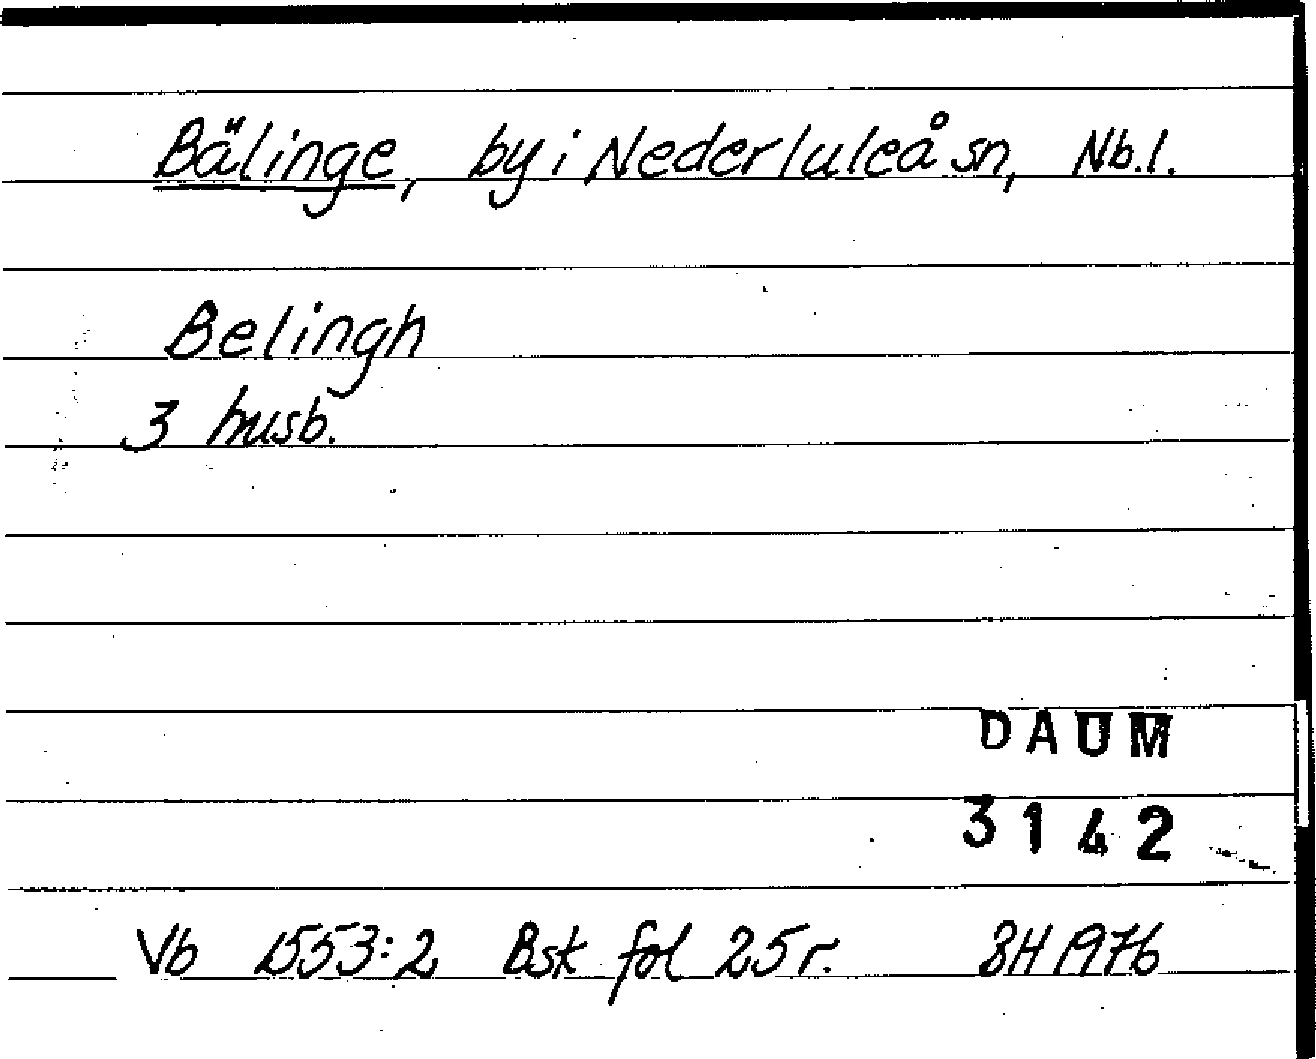 Bälinge, by i Nederluleå sn, Nb.l.
Belingh
3 husb.
DAUM
3142
Vb 1553:2 Bsk fol 25 r. BH 1976